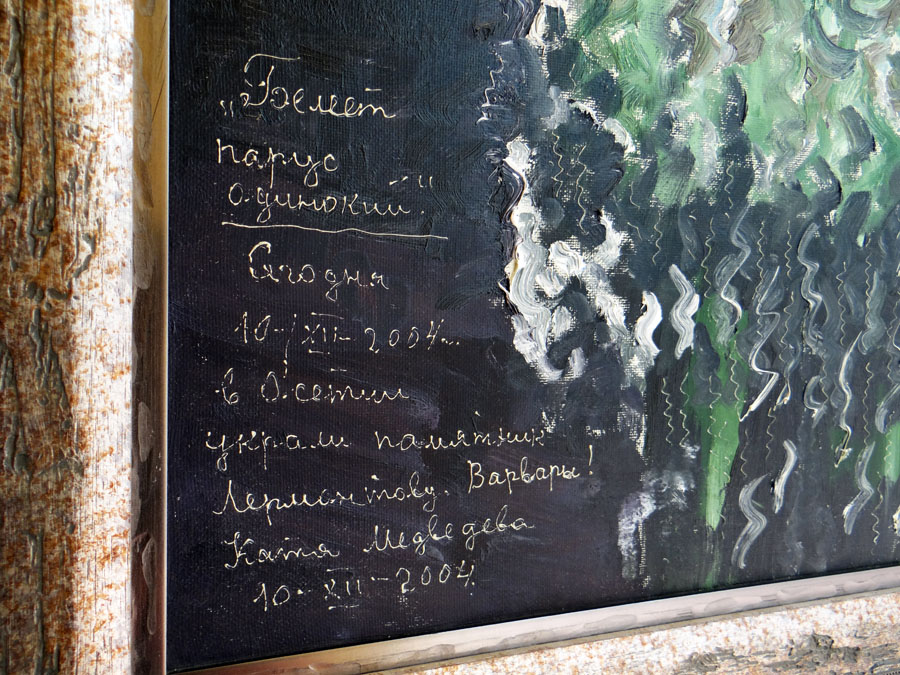 „Белеет
парус
одинокий".
Сегодня
10-XII-2004г.
в Осетии
украли памятник
Лермонтову. Варвары!
Катя Медведева
10-XII-2004